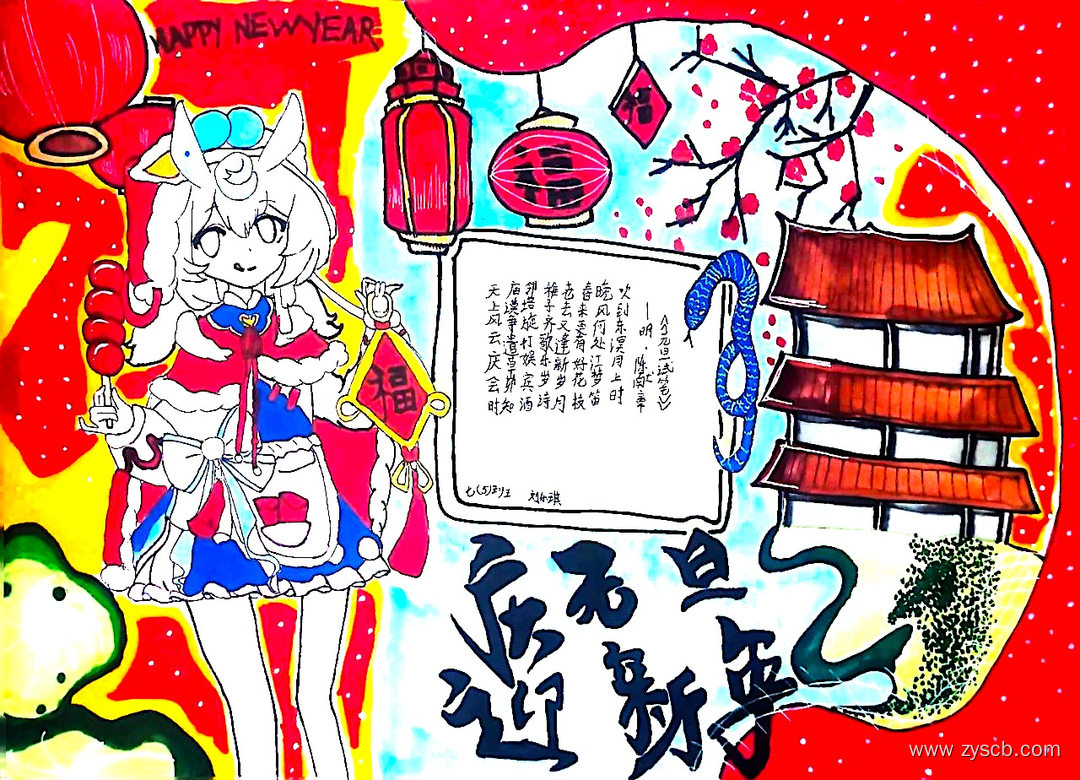 HAPPY NEW YEAR
福
福
福
《元旦试笔》
—明·陈献章
天上风云庆会时
庙谟争遣草茅知
邻墙旋打娱宾酒
稚子齐歌乐岁诗
老去又逢新岁月
春来更有好花枝
晚风何处江楼笛
吹到东溟月上时
七(5)班 刘琪
庆元旦
迎新年
www.zyscb.com